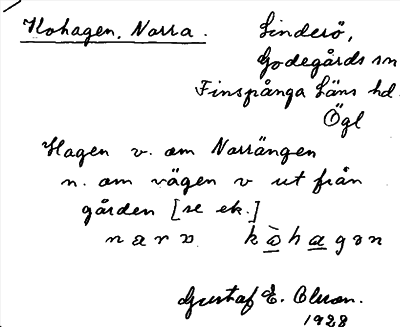 Kohagen, Norra.
Sinderö,
Godegårds sn
Finspånga läns hd.
Ögl
Hagen v. om Norrängen
n. om vägen v ut från
gården [se ek.]
Gustaf E. Olsson.
1928